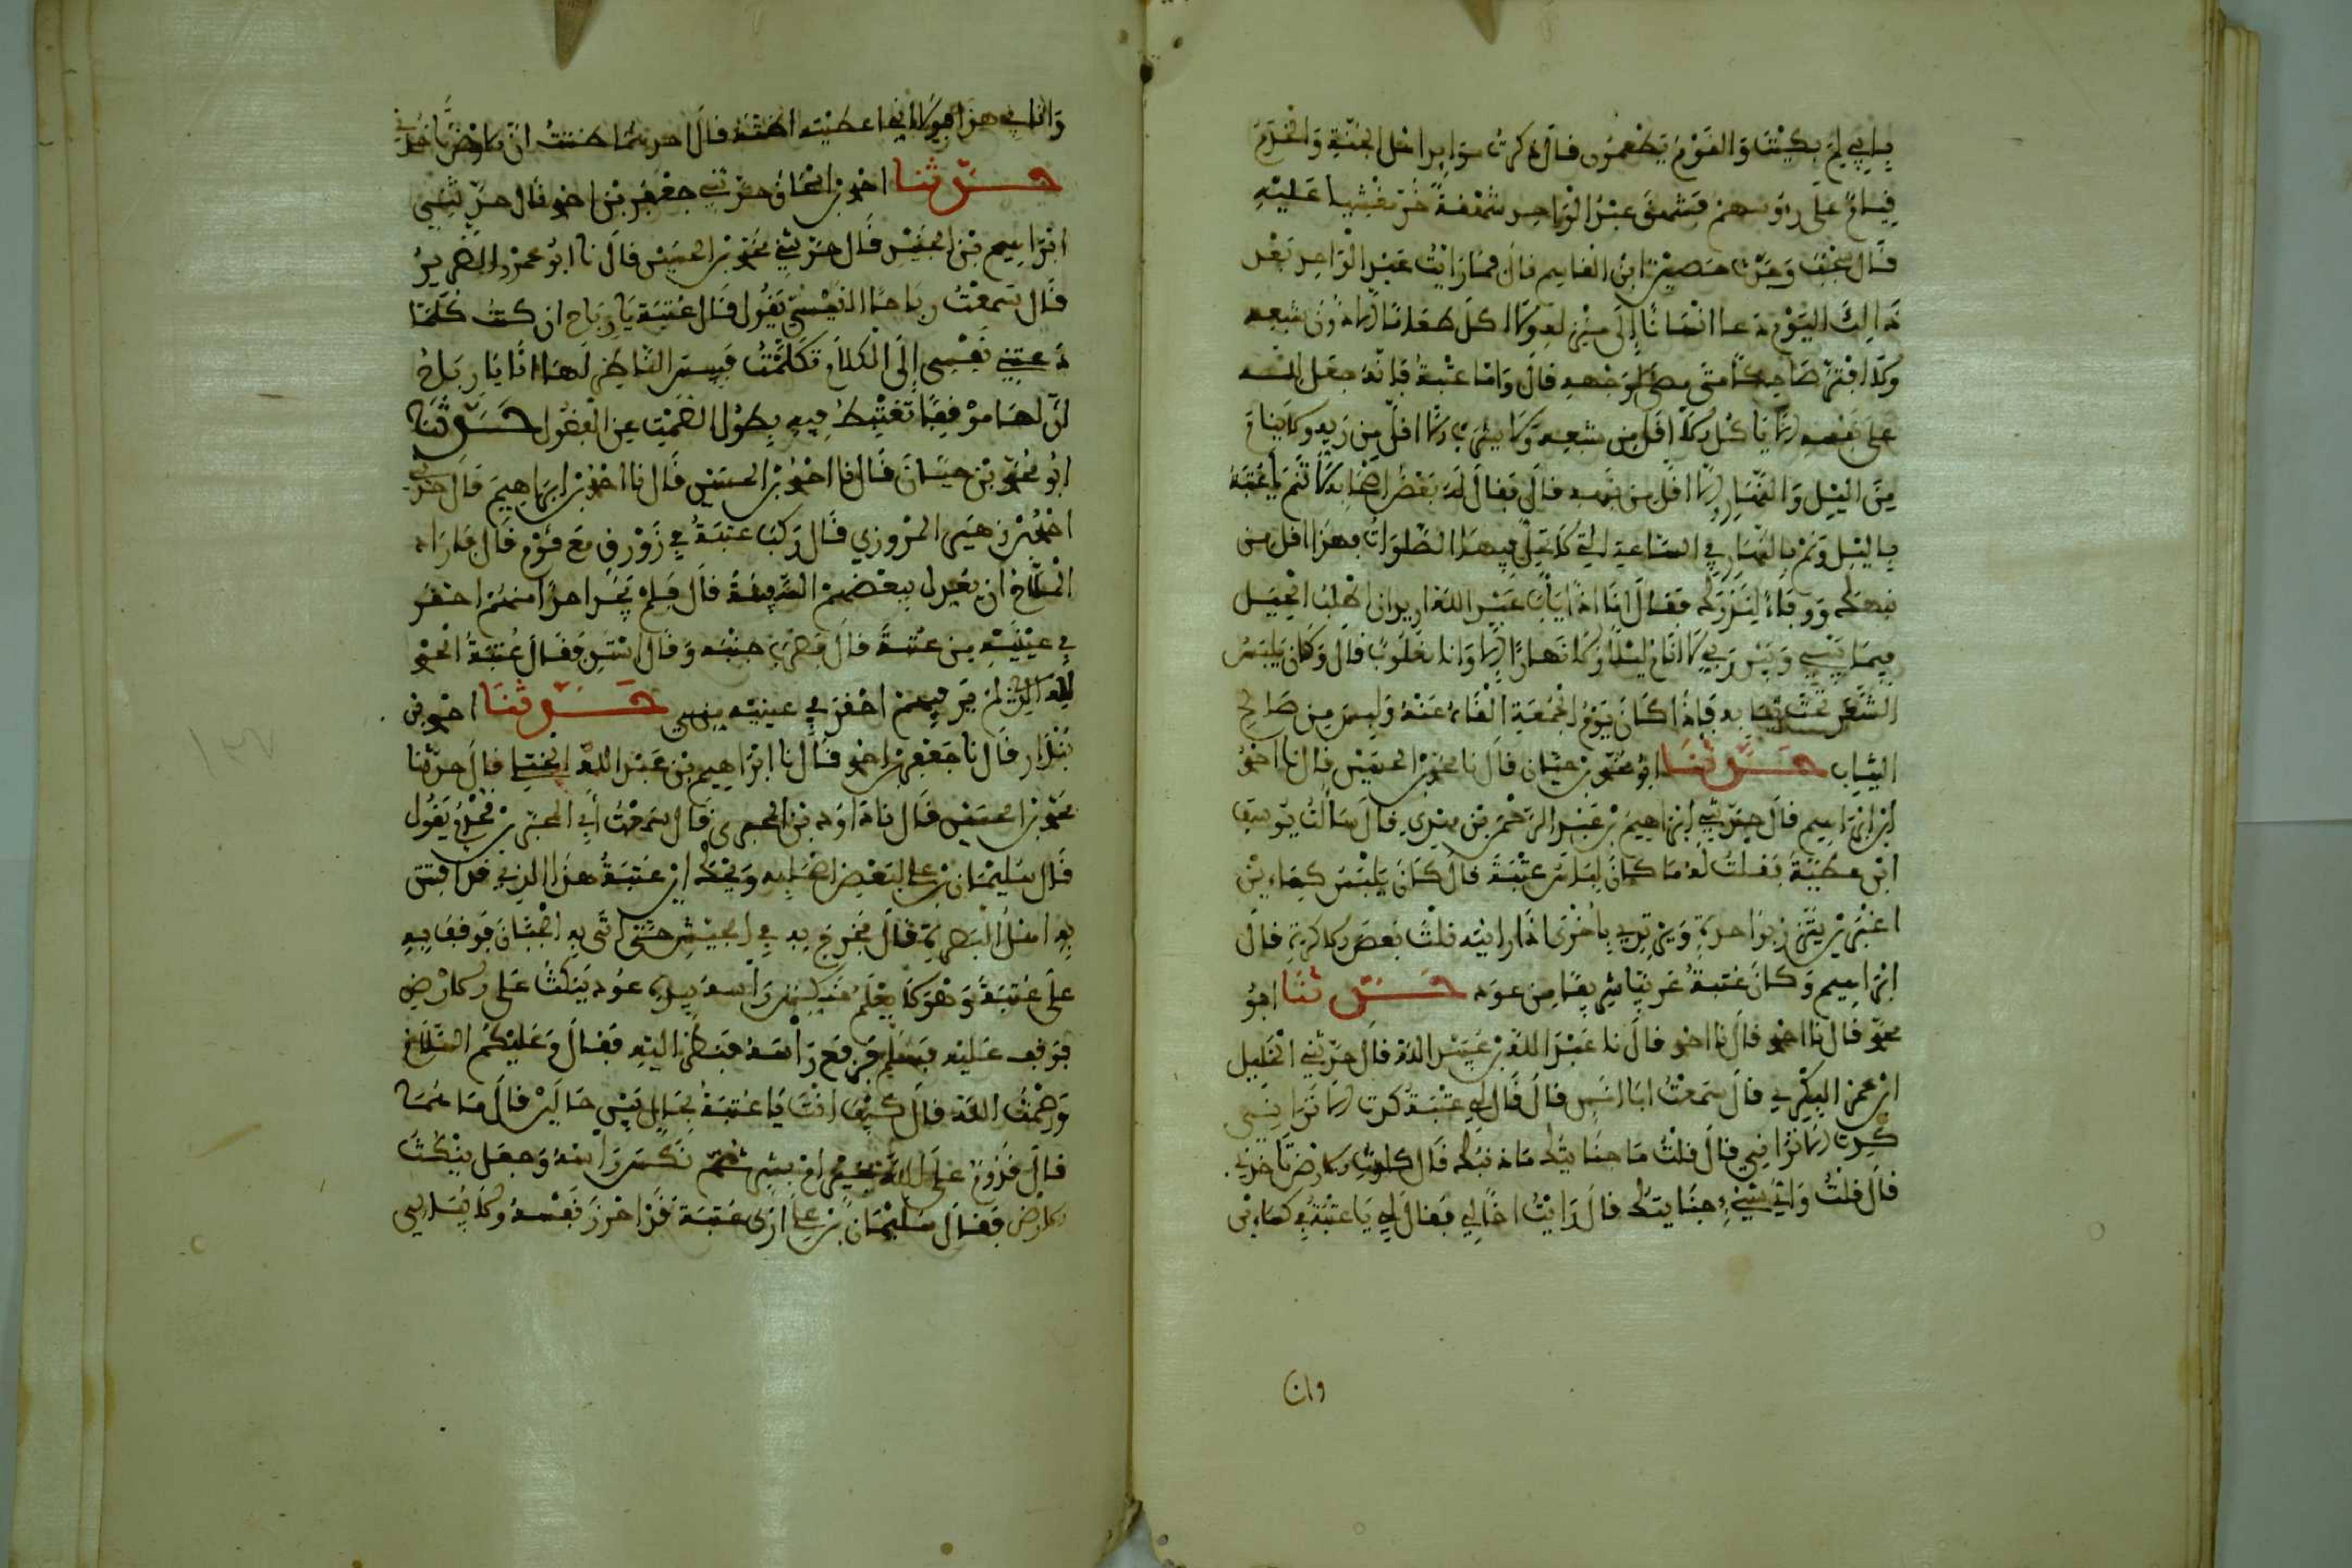 يا ابي لم بكيت والقوم يطعمون فال ذكرت موايد اهل الجنة والخدم
فيام على رءوسهم فشهق عبد الواحد شهفة خر مغشيا عليه
فال محمد وحدثنا حصين ابن الفاسم فال فما رايت عبد الواحد بعد
ذالك اليوم دعا انسانا الى منزله ولا اكل طعاما الا دون شبعه
ولا افتر ضاحكا متى مضى لوجهه فال واما عتبة فانه جعل لله
على نفسه الا ياكل الا افل من شبعه ولا يشرب الا افل من ريه ولا ينام
من اليل والنهار الا افل من نهمه فال ففال له بعض اصحابه لا تنم يا عتبة
باليل ونم بالنهار في الساعة التي لا تحل فيها الصلوات فهذا افل من
نومك ووفاء لنذرك ففال انا اذا يا ابا عبد الله اريد ان اطلب الحيل
فيما بيني وبين ربي لا انام ليلا ولا نهارا الا وانا مغلوب فال وكان يلبس
الشعر تحت ثيابه فاذا كان يوم الجمعة الفاه عنه ولبس من صالح
الثياب حدثنا ابو محمد بن حيان فال نا احمد بن الحسين فال نا احمد
ابن ابراهيم فال حدثني ابراهيم بن عبد الرحمن بن مهدي فال سالت يوسف
ابن عطية ففلت له ما كان لباس عتبة فال كان يلبس كساءين
اغبرين يتزر بواحدة ويرتدي باخرى اذا رايته فلت بعض الاكرة فال
ابراهيم وكان عتبة عربيا شريفا من عود حدثنا ابو
محمد فال نا احمد فال نا احمد فال نا عبد الله بن عيسى الله فال حدثني الخليل
ابن عمر البكري فال سمعت ابا انس فال فال لي عتبة كدت الا تراني
كدت الا تراني فال فلت ما جنايتك ما ذنبك فال كادت الارض تاخذني
فال فلت واي شيء جنايتك فال رايت اخا لي ففال لي يا عتبة في كساءين
وان
وانا في هذا فولا اني اعطيته احدهما فال احدهما ظننت ان الارض تاخذني
حدثنا احمد بن اسحاق حدثني جعفر بن احمد فال حدثني
ابراهيم بن الجنيد فال حدثني محمد بن الحسين فال نا ابو عمرو الضرير
فال سمعت رباحا القيسي يفول فال عتبة يا رباح ان كنت كلما
دعتني نفسي الى الكلام تكلمت فبيس الناظر لها انا يا رباح
ان لها موفعا تغتبط فيه بطول الصمت عن الفضول حدثنا
ابو محمد بن حيان فال نا احمد بن الحسين فال نا احمد بن ابراهيم فال حدثني
احمد بن زهير المروزي فال ركب عتبة في زورق مع فوم فال فاراد
الملاح ان يعدل ببعضهم السفينة فال فلم يجد احدا منهم احفر
في عينيه من عتبة فال فضرب جنبه وفال استو ففال عتبة الحمد
لله الذي لم ير فيهم احفر في عينيه مني حدثنا احمد بن
بندار فال نا جعفر بن احمد فال نا ابراهيم بن عبد الله الختلي فال حدثنا
محمد بن الحسين فال نا داود بن المحبر فال سمعت ابي المحبر بن فحذم يفول
فال سليمان بن علي لبعض اصحابه ويحك اين عتبة هذا الذي فد افتتن
به اهل البصرة فال فخرج به في الجيش حتى اتى به الجبان فوفف به
على عتبة وهو لا يعلم منكس راسه بيده عود ينكث على الارض
فوفف عليه فسلم فرفع راسه فنظر اليه ففال وعليكم السلام
ورحمت الله فال كيف انت يا عتبة فال بحال بين حالين فال ما هما
فال فدوم على الله بخير او بشر ثم نكس راسه وجعل ينكث
الارض ففال سليمان بن علي ارى عتبة فد احرز نفسه ولا يبالي